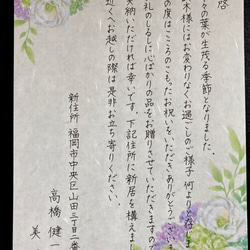 啓
々の葉が生茂る季節となりました。
木様にはお変わりなくお過しのご様子 何よりと存じま
の度はこころのこもったお祝いをいただきありがとうござい
礼のしるしに心ばかりの品をお贈りさせていただきますの
笑納いただければ幸いです。下記住所に新居を構えまし
近くへお越しの際は是非お立ち寄りください。
新住所 福岡市中央区山田三丁目二番
高橋 健一
美